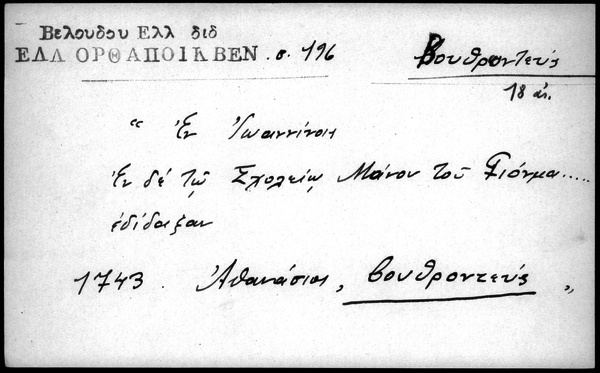 Βελουδου Ελλ διδ
ΕΛΛ ΟΡΘ ΑΠΟΙΚ ΒΕΝ. σ. 196
Βουθροντεύς
18 αι.
“ Ἐν Ἰωαννίνοις
Ἐν δὲ τῷ Σχολείῳ Μάνου τοῦ Γκιόνμα.....
ἐδίδαξαν
1743. Ἀθανάσιος, Βουθροντεύς „